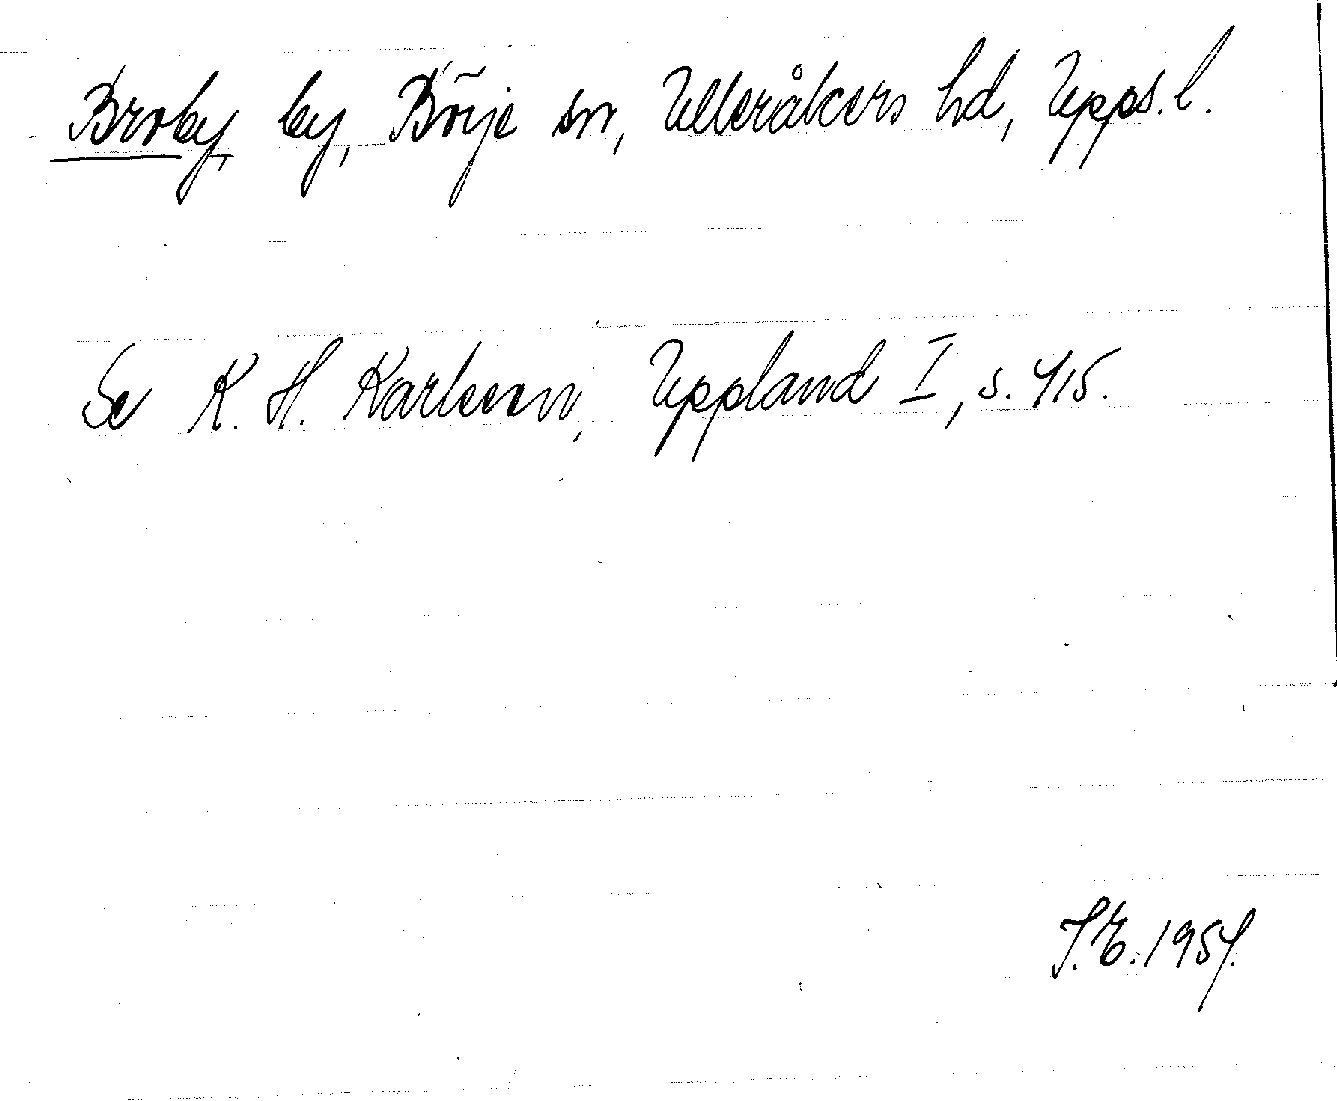 Broby, by, Börje sn, Ulleråkers hd, Upps. l.
Se K. H. Karlsson, Uppland I, s. 415.
S.E. 1954.